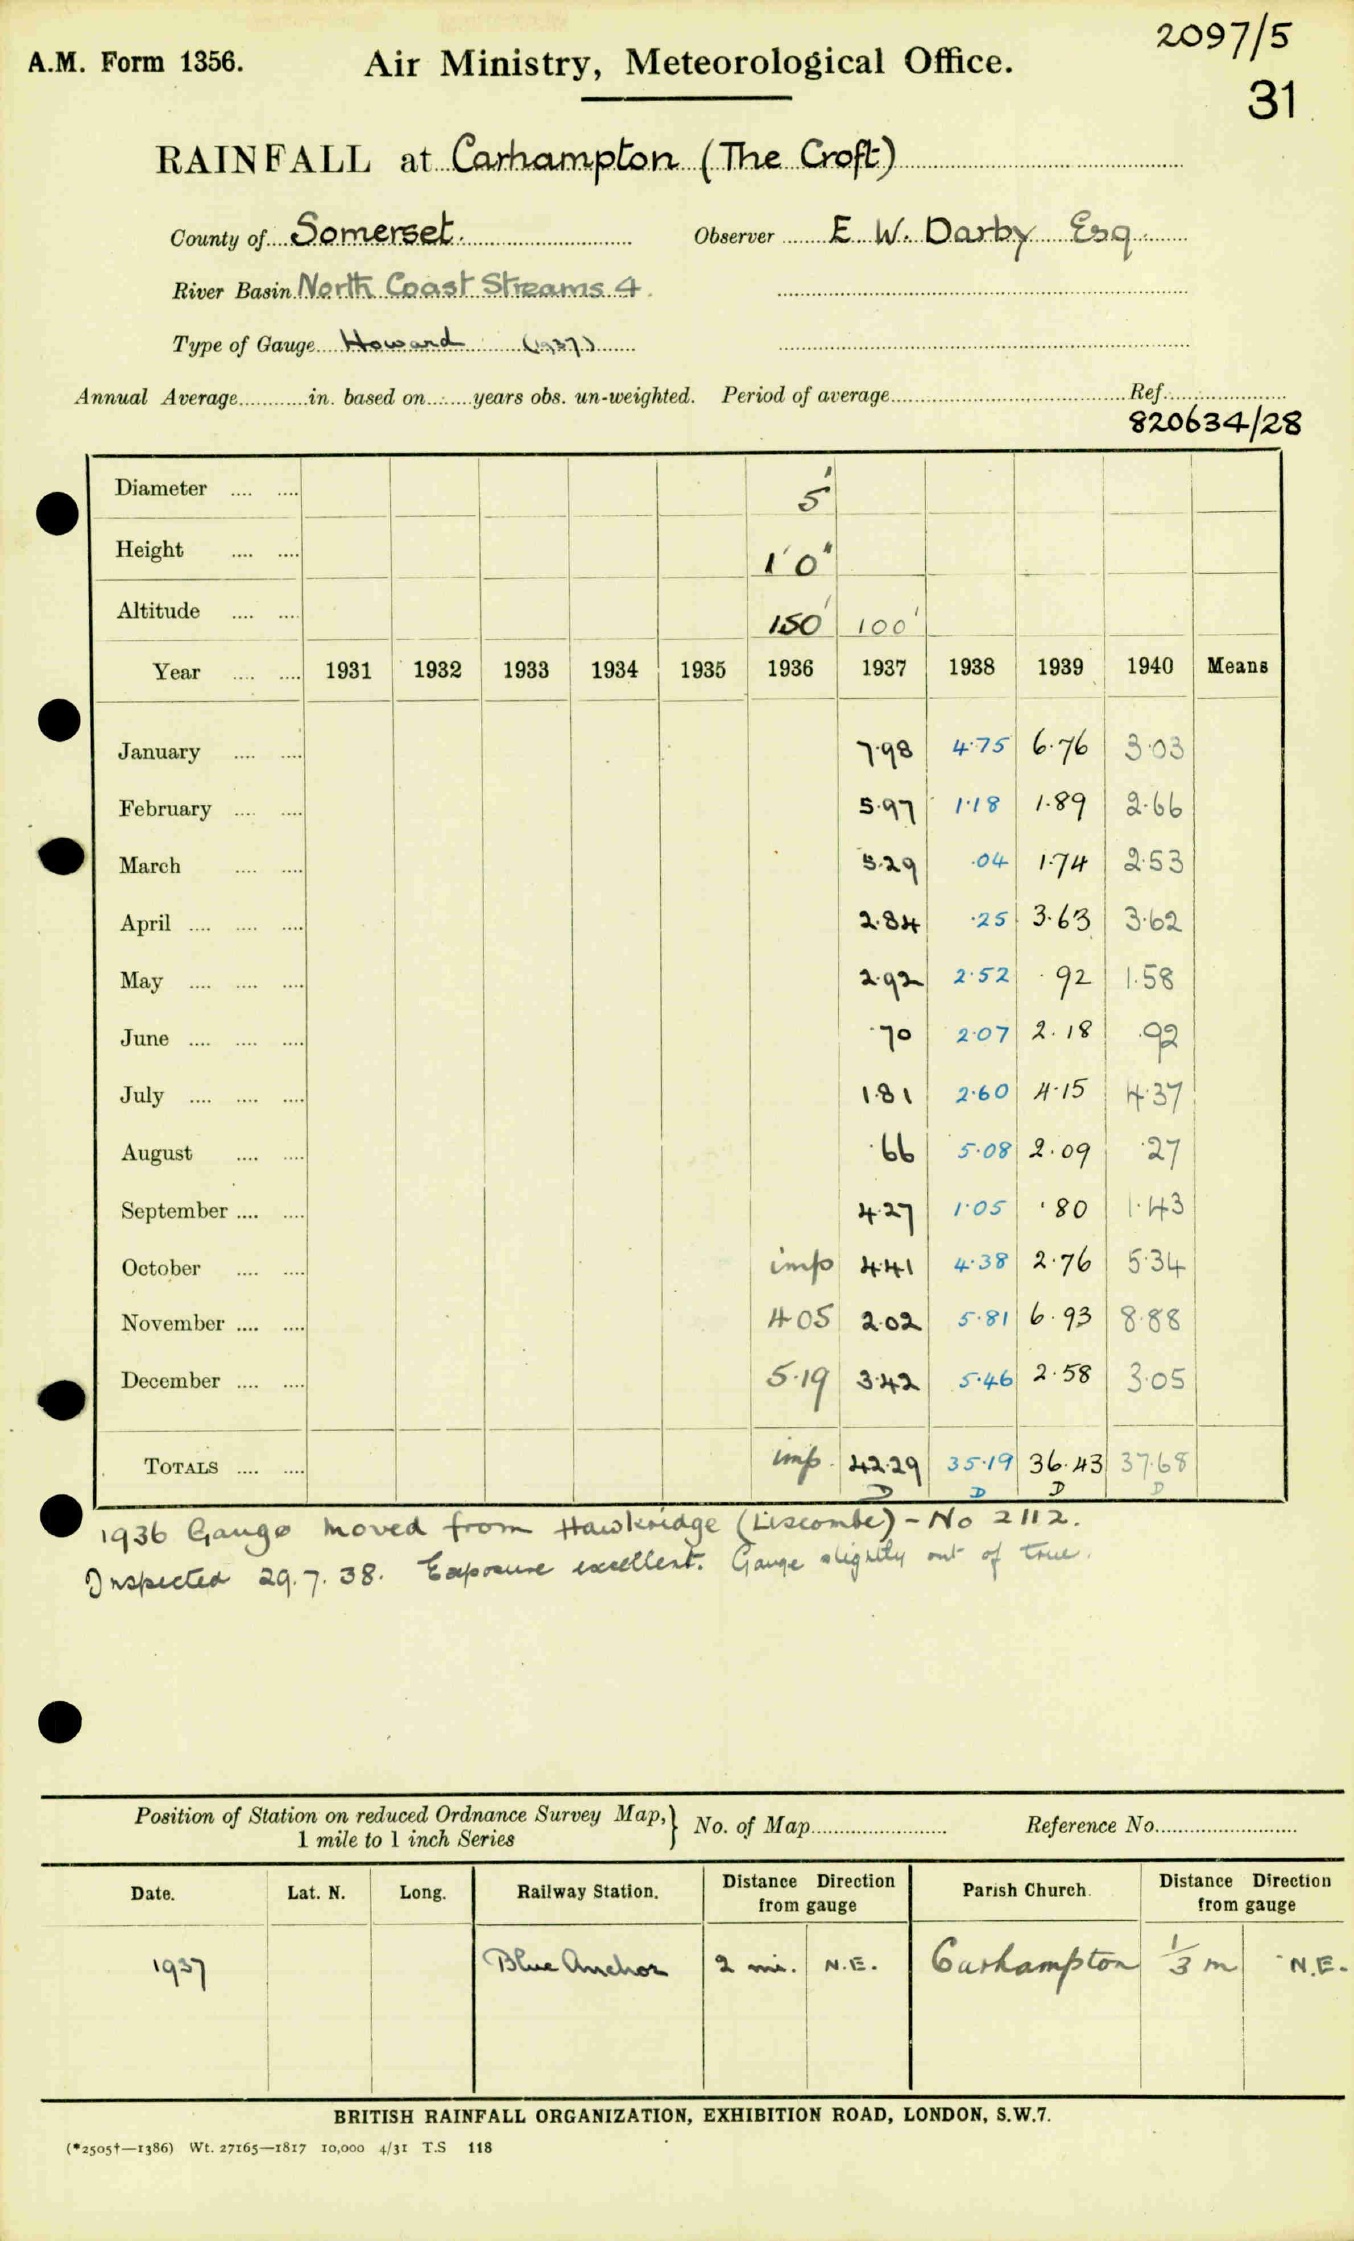 2097/5
A.M. Form 1356. Air Ministry, Meteorological Office.
31
RAINFALL at Carhampton (The Croft)
County of Somerset. Observer E. W. Darby Esq.
River Basin North Coast Streams 4.
Type of Gauge Howard (1937)
Annual Average in. based on years obs. un-weighted. Period of average Ref.
820634/28
Diameter 5'
Height 1' 0"
Altitude 150' 100'
Year 1931 1932 1933 1934 1935 1936 1937 1938 1939 1940 Means
January 7.98 4.75 6.76 3.03
February 5.97 1.18 1.89 2.66
March 5.29 .04 1.74 2.53
April 2.84 .25 3.63 3.62
May 2.92 2.52 .92 1.58
June .70 2.07 2.18 .92
July 1.81 2.60 4.15 4.37
August .66 5.08 2.09 .27
September 4.27 1.05 .80 1.43
October imp 4.41 4.38 2.76 5.34
November 4.05 2.02 5.81 6.93 8.88
December 5.19 3.42 5.46 2.58 3.05
TOTALS imp. 42.29 35.19 36.43 37.68
D D D D
1936 Gauge moved from Hawkridge (Liscombe) - No 2112.
Inspected 29.7.38. Exposure excellent. Gauge slightly out of true.
Position of Station on reduced Ordnance Survey Map, } No. of Map Reference No.
1 mile to 1 inch Series
Date. Lat. N. Long. Railway Station. Distance Direction from gauge Parish Church. Distance Direction from gauge
1937 Blue Anchor 2 mi. N.E. Carhampton 1/3 m N.E.
BRITISH RAINFALL ORGANIZATION, EXHIBITION ROAD, LONDON, S.W.7.
(*2505†—1386) Wt. 27165—1817 10,000 4/31 T.S 118